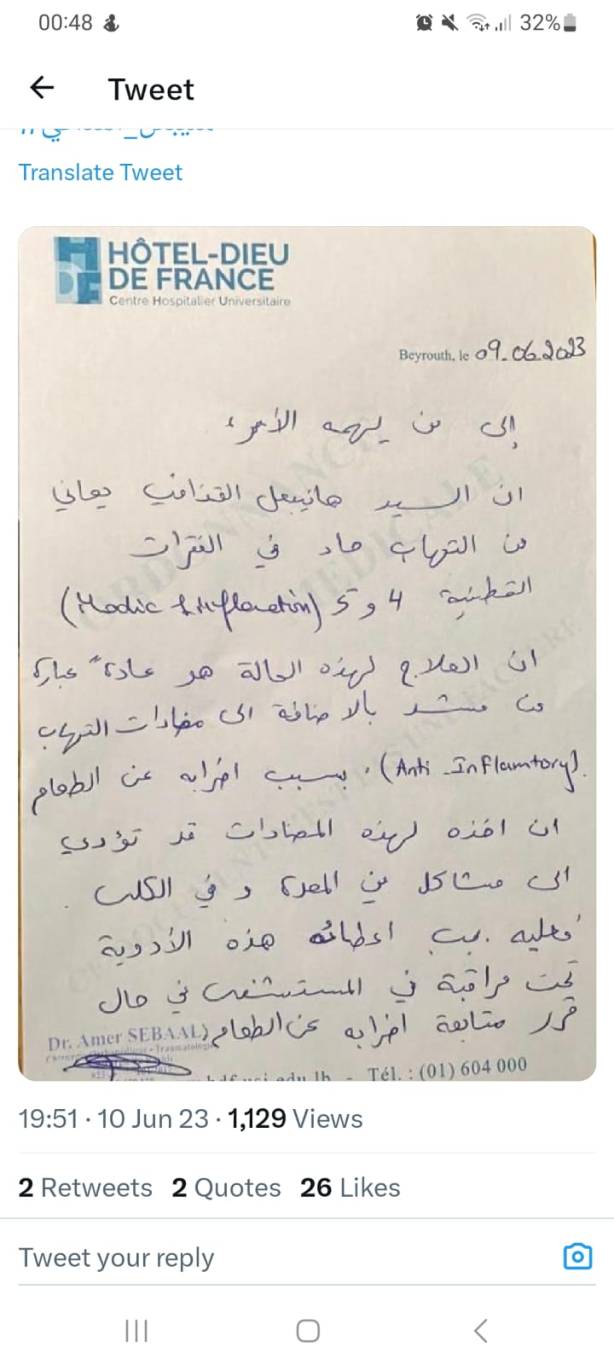 00:48
32%
Tweet
Translate Tweet
HÔTEL-DIEU
DE FRANCE
Centre Hospitalier Universitaire
Beyrouth, le 09.06.2023
إلى من يهمه الأمر،
ان السيد هانيبعل القذافي يعاني
من التهاب حاد في الفقرات
القطنية 4 و 5 (Modic Inflamation)
ان العلاج لهذه الحالة هو عادةً عبارة
من مشد بالاضافة الى مضادات التهاب
(Anti Inflamtory). بسبب اضرابه عن الطعام
ان اخذه لهذه المضادات قد تؤدي
الى مشاكل في المعدة و في الكلى.
وعليه يجب اعطائه هذه الأدوية
تحت مراقبة في المستشفى في حال
قرر متابعة اضرابه عن الطعام
Dr. Amer SEBAALY
Tél. : (01) 604 000
19:51 · 10 Jun 23 · 1,129 Views
2 Retweets 2 Quotes 26 Likes
Tweet your reply